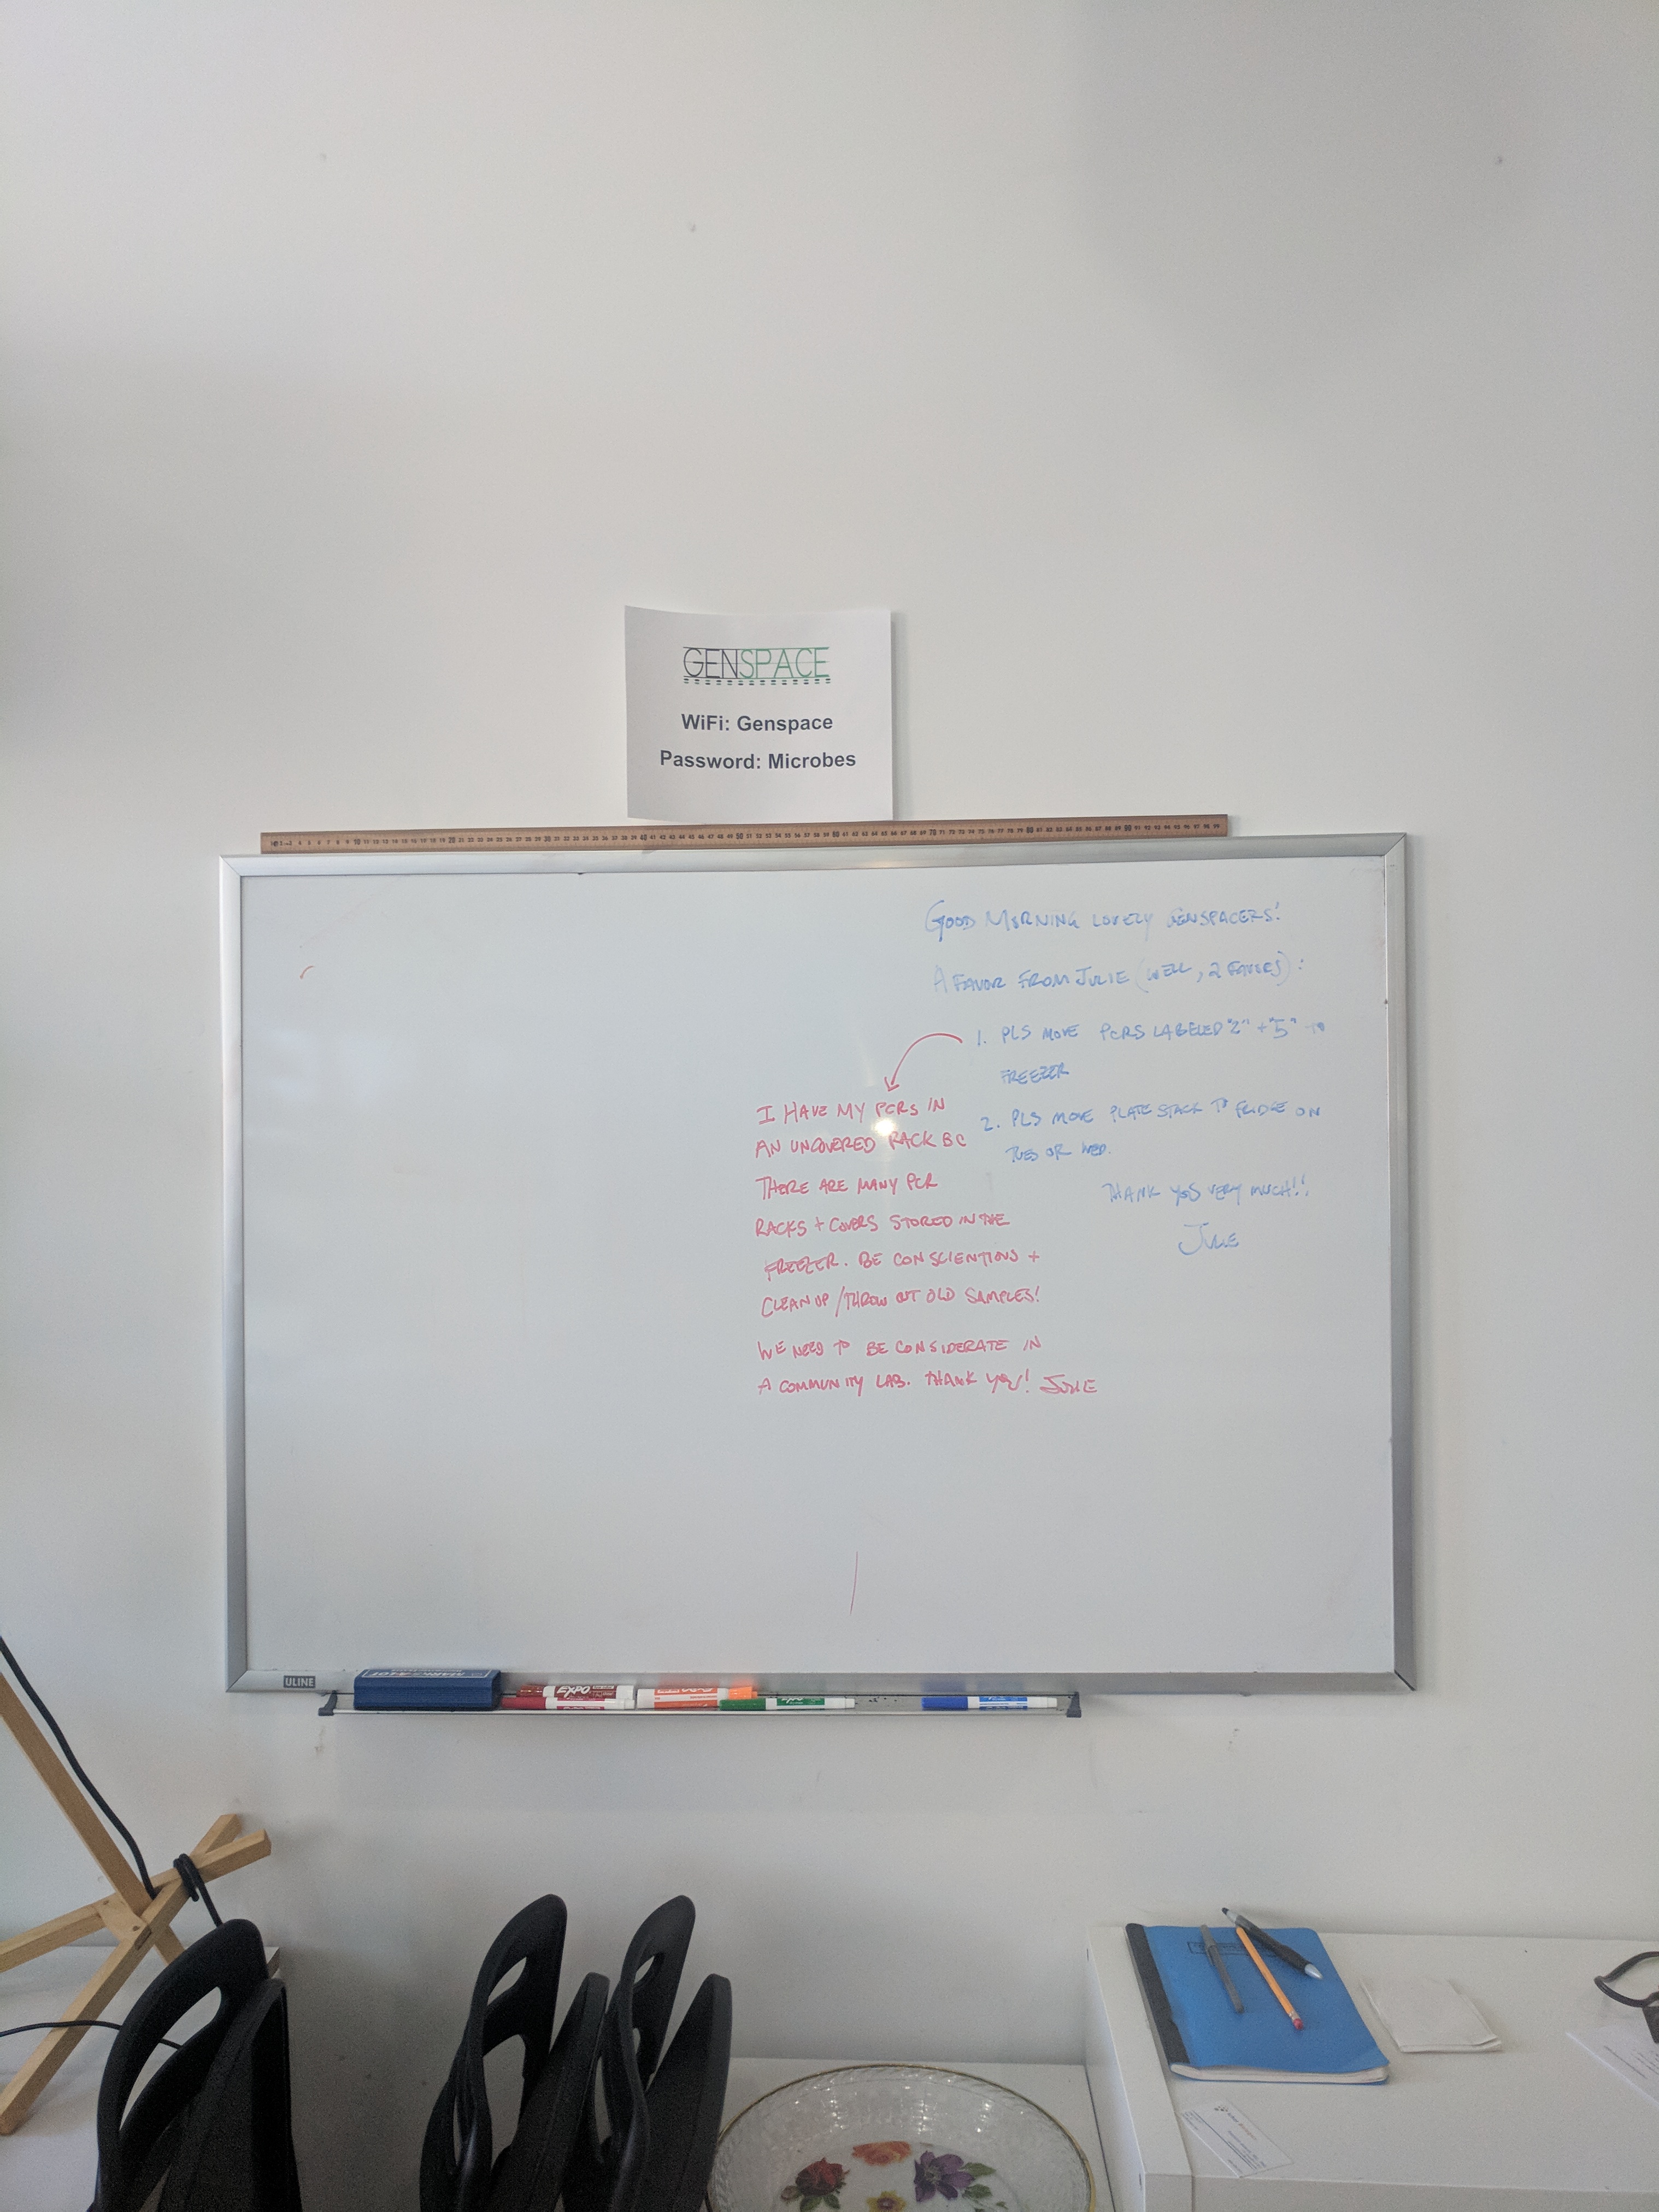 GENSPACE
WiFi: Genspace
Password: Microbes
GOOD MORNING LOVELY GENSPACERS!
A FAVOR FROM JULIE (WELL, 2 FAVORS):
1. PLS MOVE PCRS LABELED "2" + "5" TO
FREEZER
2. PLS MOVE PLATE STACK TO FRIDGE ON
TUES OR WED.
THANK YOU VERY MUCH!!
JULIE
I HAVE MY PCRS IN
AN UNCOVERED RACK BC
THERE ARE MANY PCR
RACKS + COVERS STORED IN THE
FREEZER. BE CONSCIENTIOUS +
CLEAN UP / THROW OUT OLD SAMPLES!
WE NEED TO BE CONSIDERATE IN
A COMMUNITY LAB. THANK YOU! JULIE
ULINE
EXPO